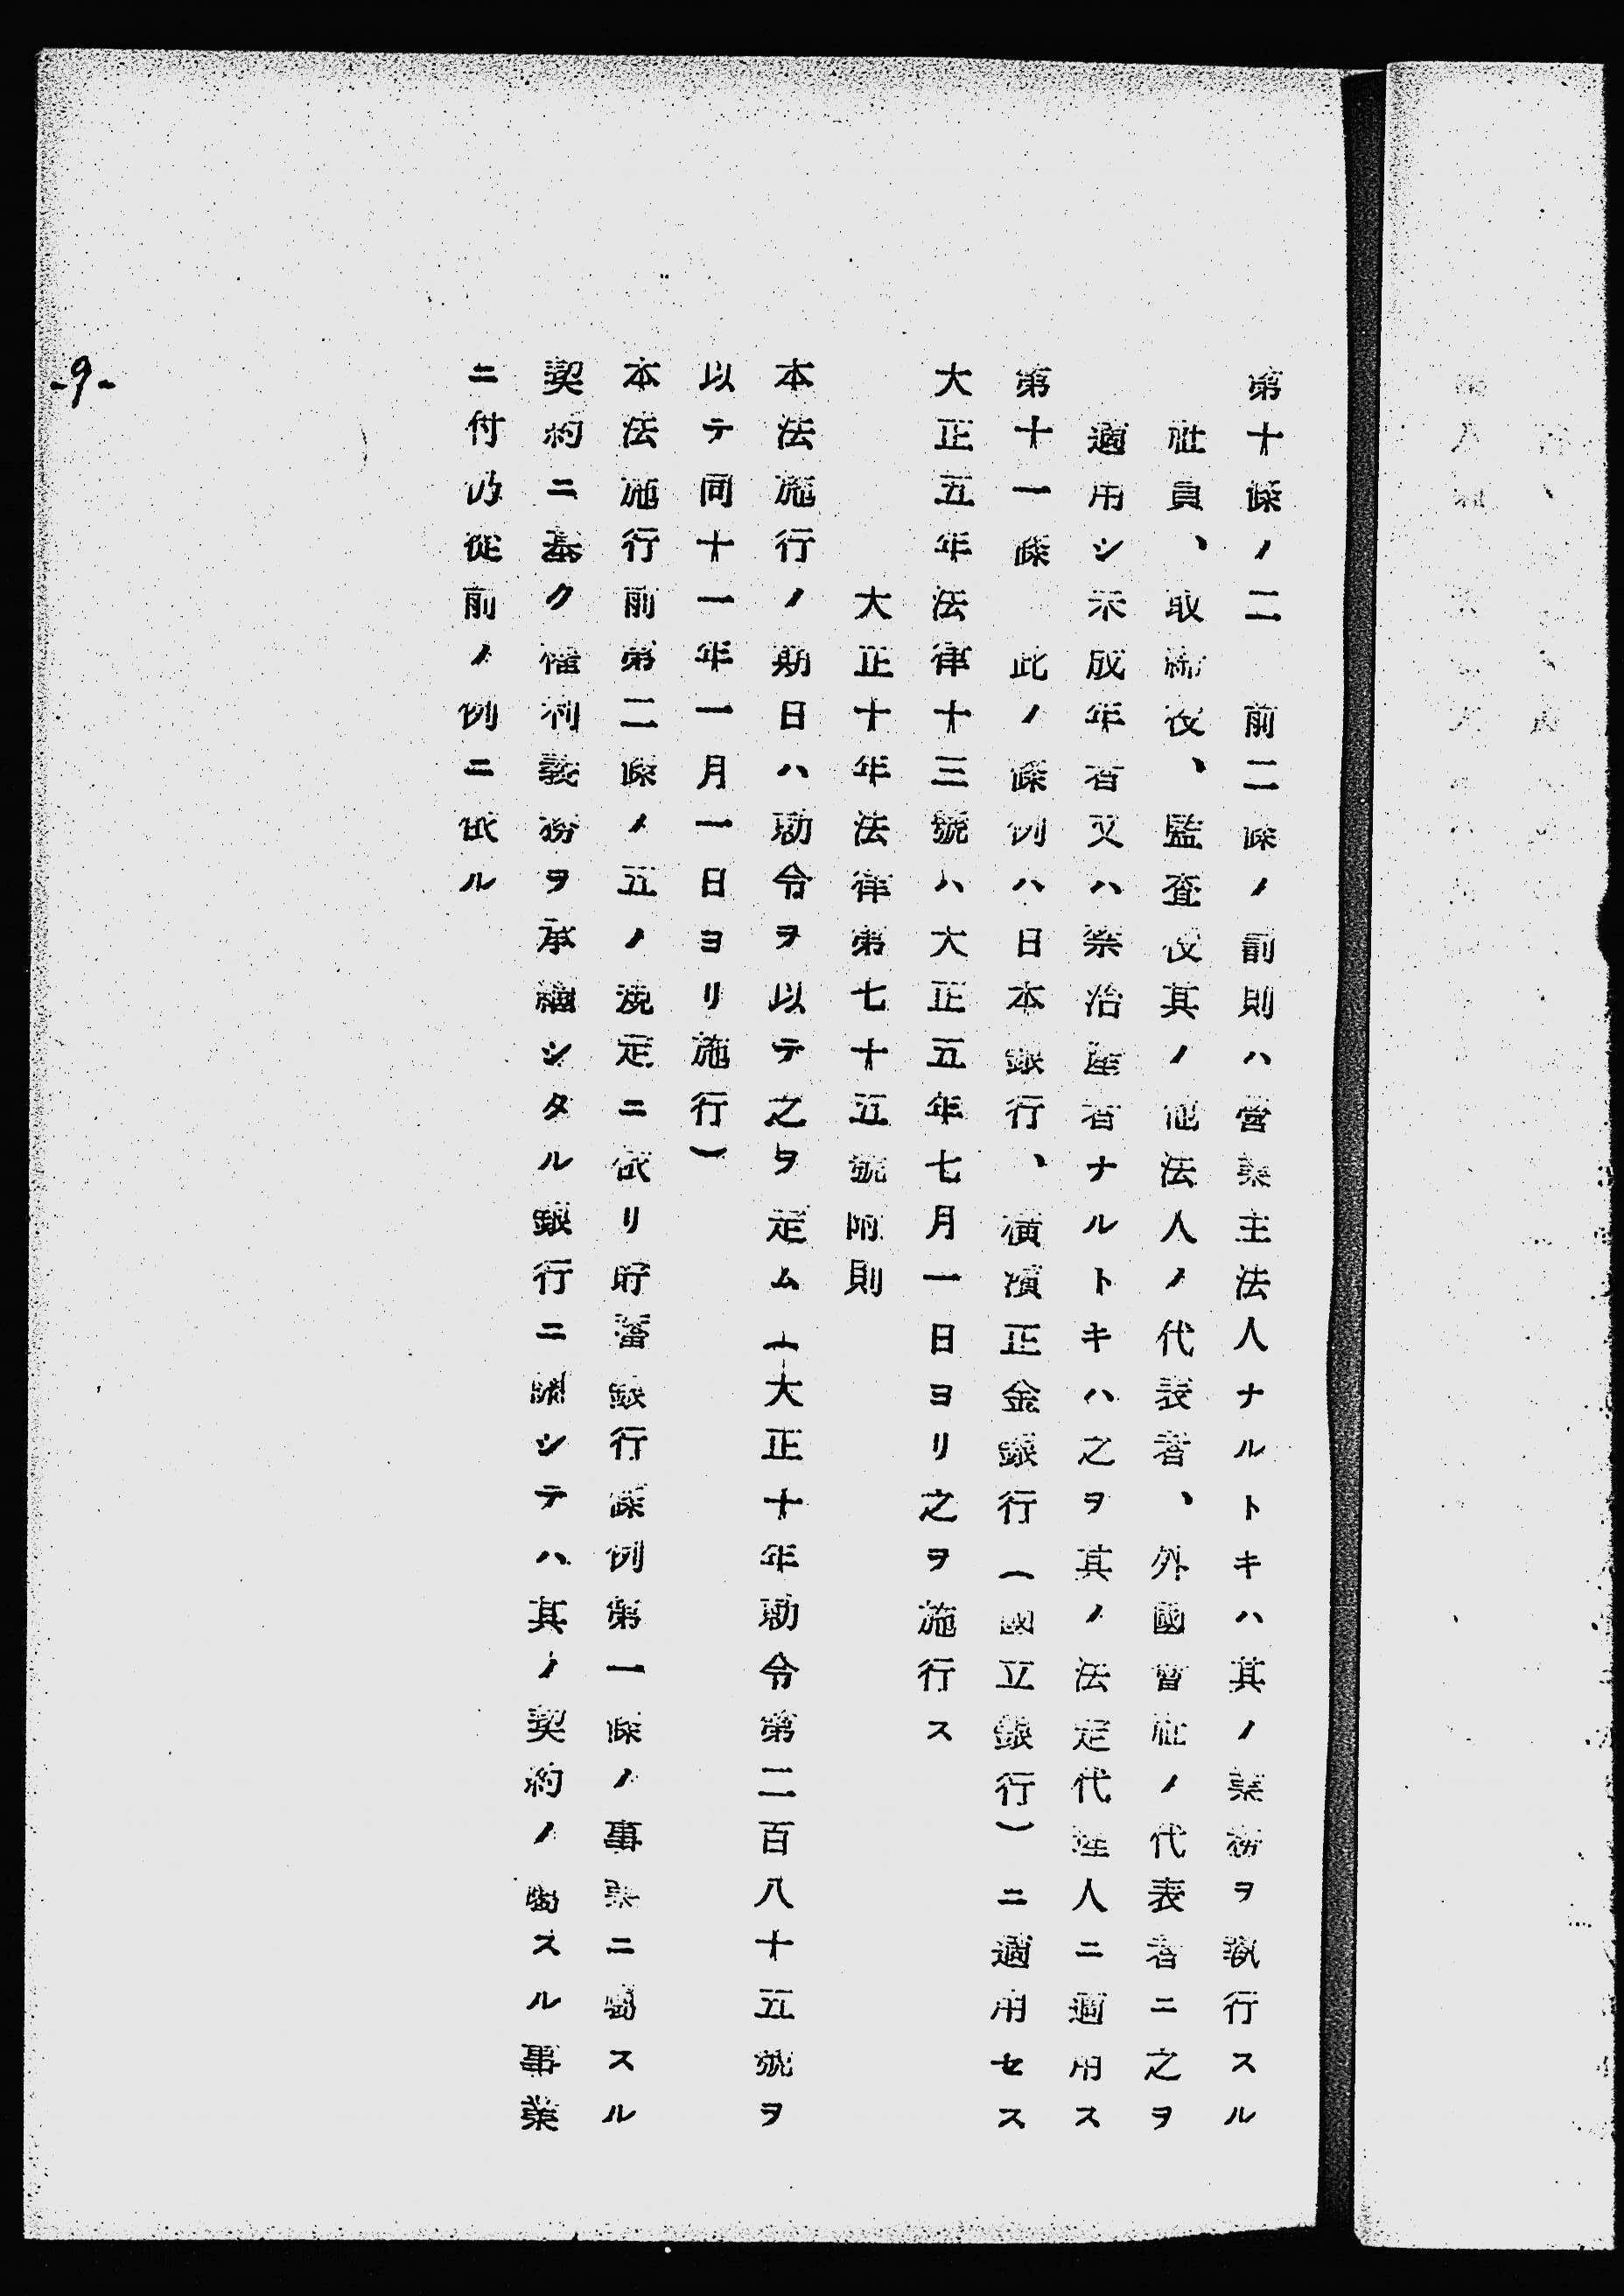 第十條ノ二　前二條ノ罰則ハ營業主法人ナルトキハ其ノ業務ヲ執行スル
社員、取締役、監査役其ノ他法人ノ代表者、外國會社ノ代表者ニ之ヲ
適用シ未成年者又ハ禁治産者ナルトキハ之ヲ其ノ法定代理人ニ適用ス
第十一條　此ノ條例ハ日本銀行、横濱正金銀行（國立銀行）ニ適用セス
大正五年法律十三號ハ大正五年七月一日ヨリ之ヲ施行ス
大正十年法律第七十五號附則
本法施行ノ期日ハ勅令ヲ以テ之ヲ定ム（大正十年勅令第二百八十五號ヲ
以テ同十一年一月一日ヨリ施行）
本法施行前第二條ノ五ノ規定ニ依リ貯蓄銀行條例第一條ノ事業ニ屬スル
契約ニ基ク權利義務ヲ承繼シタル銀行ニ關シテハ其ノ契約ノ屬スル事業
ニ付仍從前ノ例ニ依ル
-9-